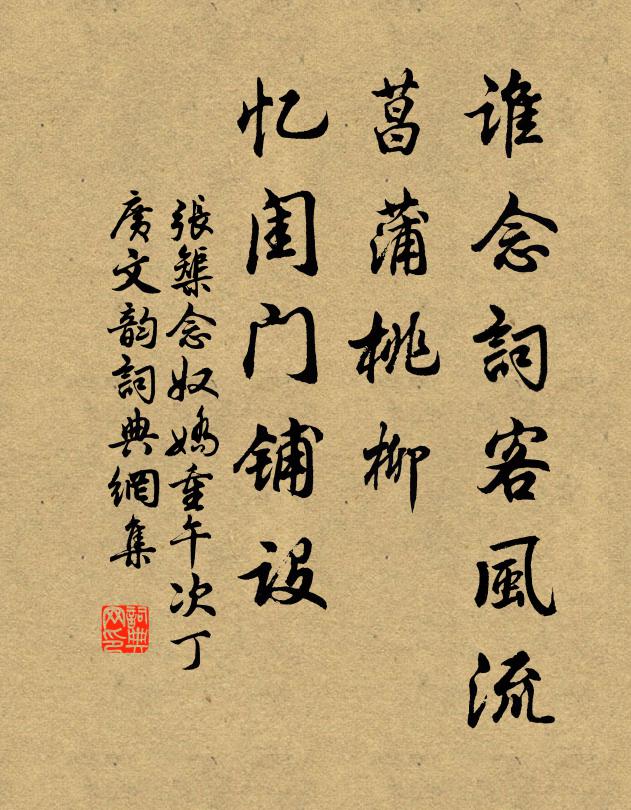 谁念詞客風流
菖蒲桃柳
忆闺门铺设
張榘念奴嬌重午次丁
廣文韵詞典網集
詞典網印